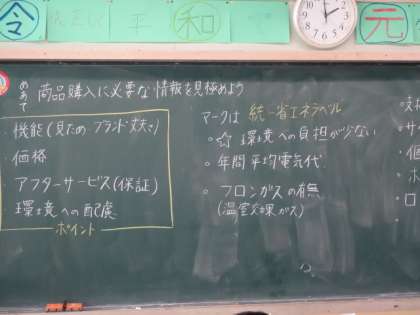 令
平
和
元
めあて 商品購入に必要な情報を見極めよう
・機能(見ため ブランド 大きさ)
・価格
・アフターサービス(保証)
・環境への配慮
ポイント
マークは 統一省エネラベル
・☆ 環境への負担が少ない
・年間平均電気代
・フロンガスの有無
(温室効果ガス)